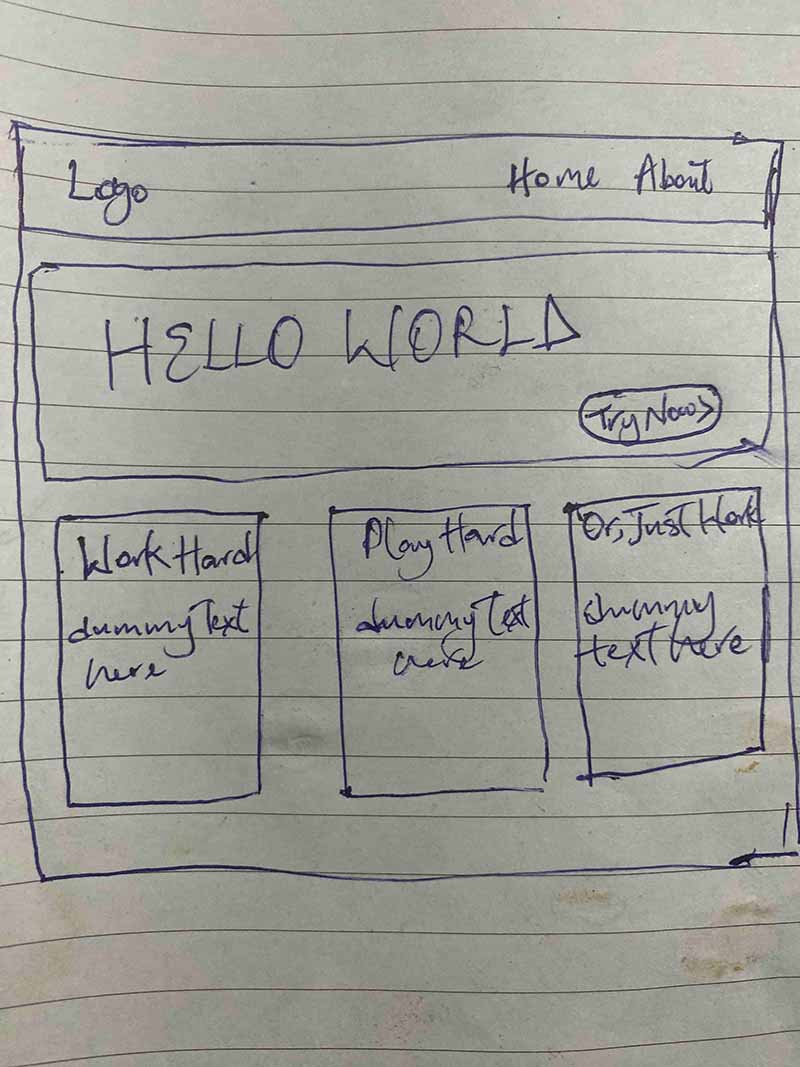 Logo
Home About
HELLO WORLD
Try Now>
Work Hard
dummy Text
here
Play Hard
dummy Text
here
Or, Just Work
dummy
text here